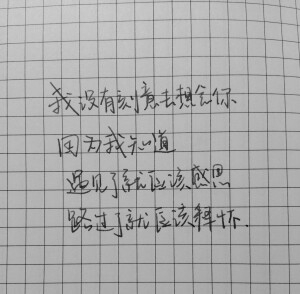 我没有刻意去想念你
因为我知道
遇见了就应该感恩
路过了就应该释怀.